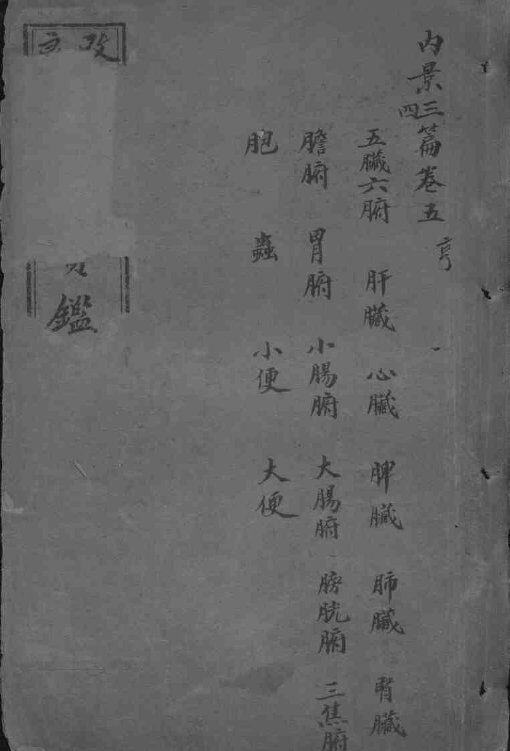 內景三四篇卷五 亨
五臟六腑 肝臟 心臟 脾臟 肺臟 腎臟
膽腑 胃腑 小腸腑 大腸腑 膀胱腑 三焦腑
胞 蟲 小便 大便
鑑